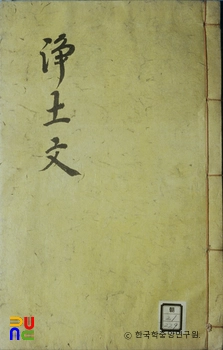 淨土文
ⓒ 한국학중앙연구원